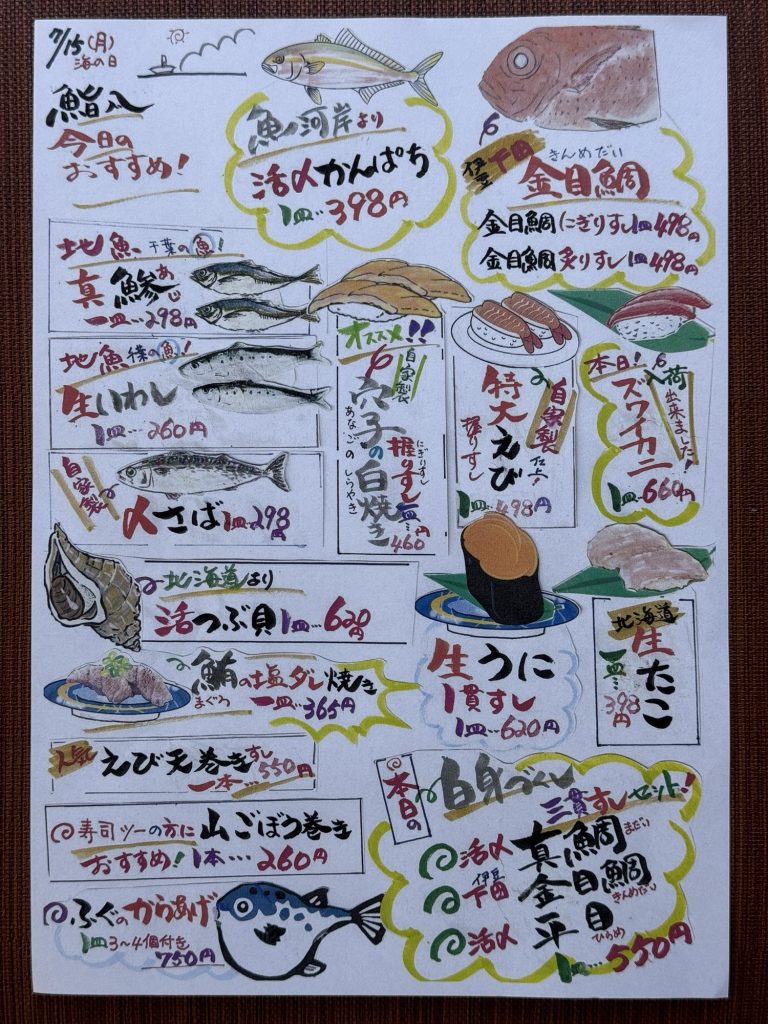 7/15(月)
海の日
鮨八
今日の
おすすめ!
魚河岸より
活〆かんぱち
1皿…398円
伊豆下田
きんめだい
金目鯛
金目鯛にぎりすし1皿498円
金目鯛炙りすし1皿498円
地魚、千葉の魚!
真鯵
あじ
一皿…298円
地魚 千葉の魚!
生いわし
1皿…260円
自家製
〆さば1皿298円
オススメ!!
自家製
穴子の白焼き
あなごのしらやき
握りすし
にぎりすし
一皿…460円
特大えび
握りすし
自家製
仕上!
1皿…498円
本日!入荷
出来ました!
ズワイカニ
1皿…660円
北海道より
活つぶ貝1皿…620円
鮪の塩ダレ焼き
まぐろ
一皿…365円
生うに
1貫すし
1皿…620円
北海道
生たこ
一皿…398円
人気
えび天巻きすし
一本…550円
寿司ツーの方に山ごぼう巻き
おすすめ!1本…260円
ふぐのからあげ
1皿3〜4個付き
750円
本日の
白身づくし
三貫すしセット!
活〆真鯛
まだい
伊豆
下田金目鯛
きんめだい
活〆平目
ひらめ
1皿…550円